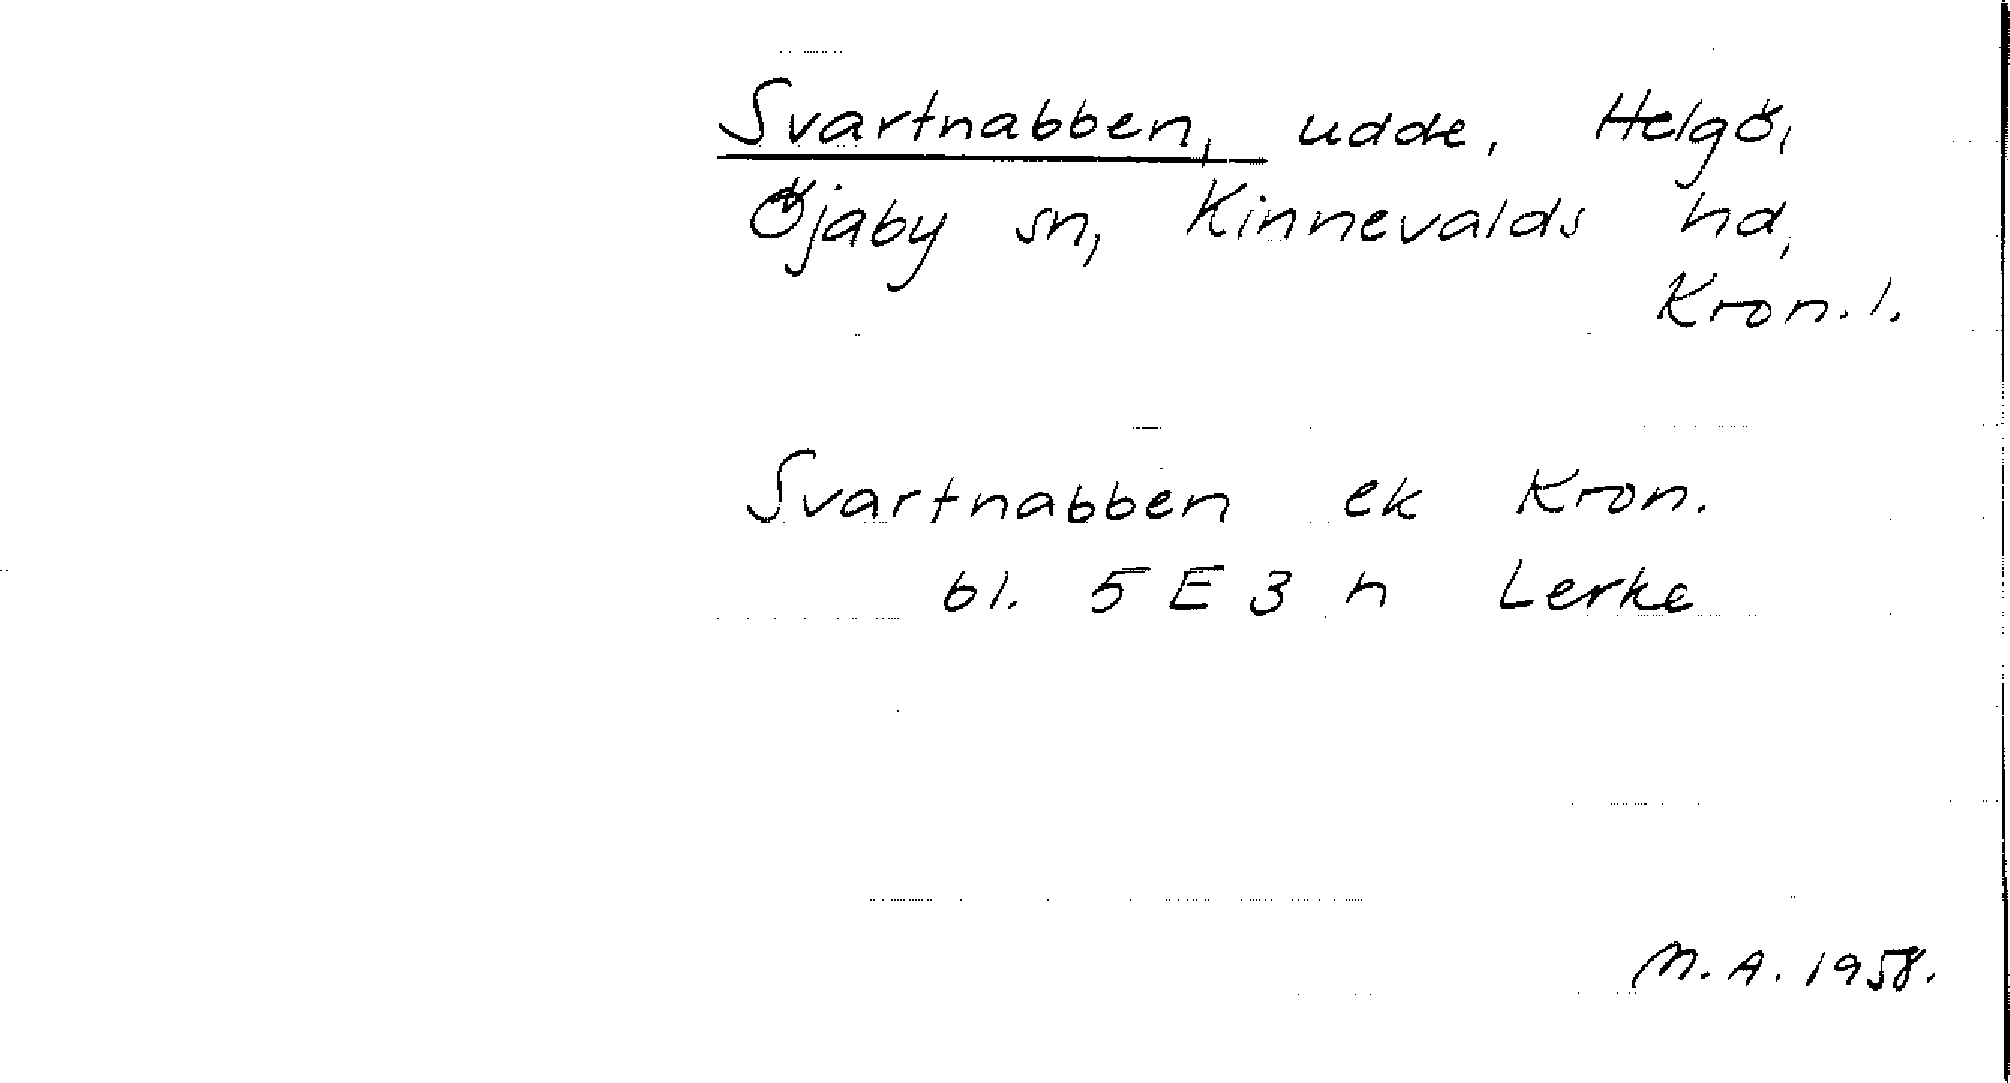 Svartnabben, udde, Helgö,
Öjaby sn, Kinnevalds hd,
Kron. l.
Svartnabben ek Kron.
bl. 5 E 3 n Lerke
M. A. 1958.